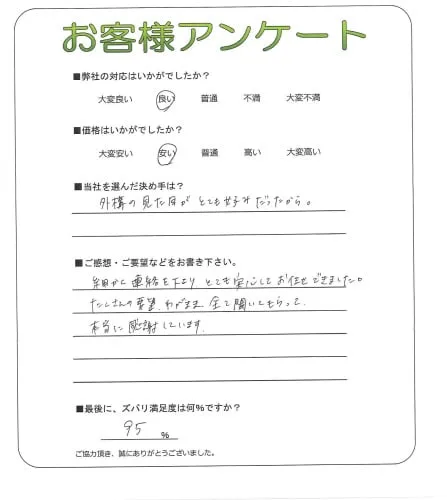 お客様アンケート
■弊社の対応はいかがでしたか？
大変良い 良い 普通 不満 大変不満
■価格はいかがでしたか？
大変安い 安い 普通 高い 大変高い
■当社を選んだ決め手は？
外構の見た目がとても好みだったから。
■ご感想・ご要望などをお書き下さい。
細かく連絡を下さりとても安心してお任せできました。
たくさんの要望、わがまま全て聞いてもらって、
本当に感謝しています。
■最後に、ズバリ満足度は何%ですか？
95 %
ご協力頂き、誠にありがとうございました。